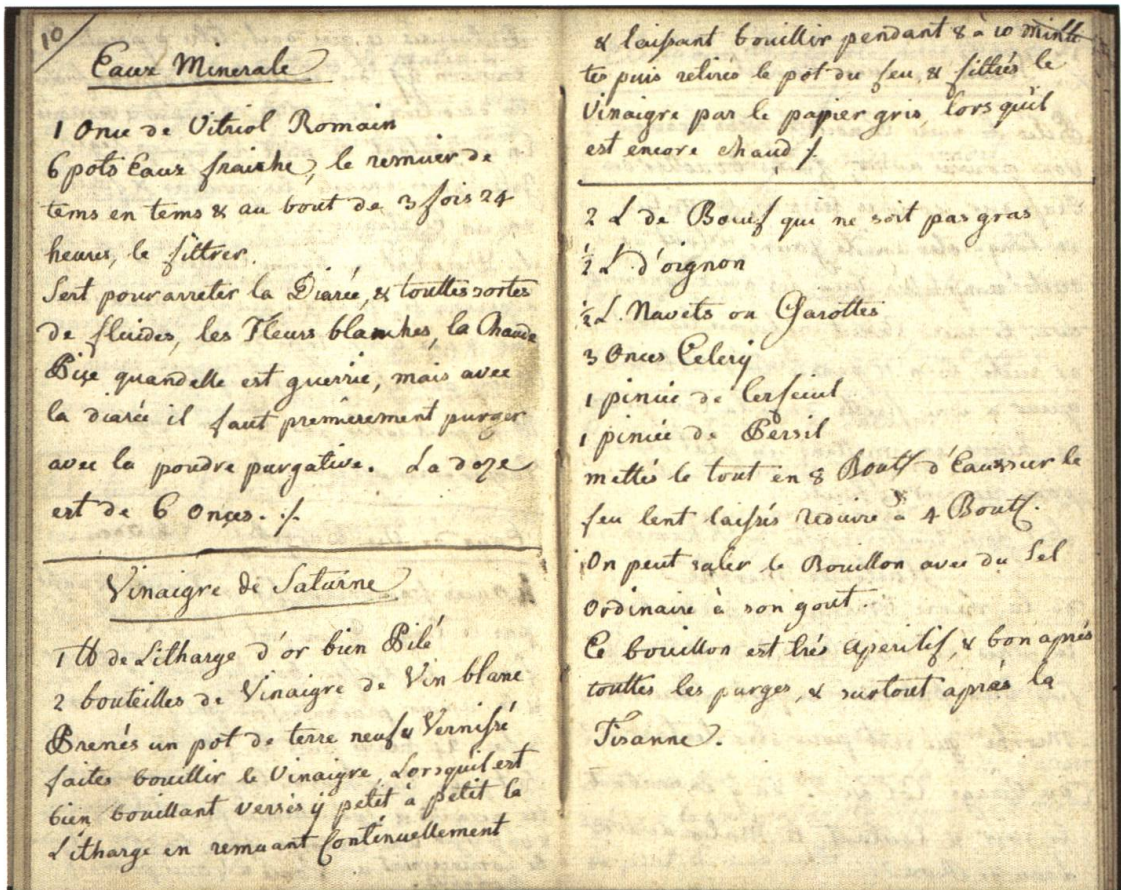 10/
Eaux Minerale
1 Once de Vitriol Romain
6 pots Eaux fraiche, le remuer de
tems en tems & au bout de 3 fois 24
heures, le filtrer.
Sert pour arreter la Diarée, & touttes sortes
de fluides, les Fleurs blanches, la Chaude
Pisse quandelle est guerrie, mais avec
la diarée il faut premierement purger
avec la poudre purgative. La doze
est de 6 Onces. ·/.
Vinaigre de Saturne
1 ℔ de Litharge d'or bien Pilé
2 bouteilles de Vinaigre de Vin blanc
Prenés un pot de terre neuf & Vernissé
faites bouillir le Vinaigre, Lorsquil est
bien bouillant versés ÿ petit à petit la
Litharge en remuant Continuellement
& laissant bouillir pendant 8 à 10 minu
tes puis retirés le pot du feu, & filtrés le
Vinaigre par le papier gris, lors qu'il
est encore chaud ·/.
2 L de Boeuf qui ne soit pas gras
½ L d'oignon
½ L. Navets ou Carottes
3 Onces Celery
1 pincée de Cerfeuil
1 pincée de Persil
mettés le tout en 8 Boutl. d'Eau sur le
feu lent laissés reduire à 4 Boutl.
On peut saler le Bouillon avec du Sel
Ordinaire à son gout
Ce bouillon est trés aperitif, & bon aprés
touttes les purges, & surtout aprés la
Tisanne.